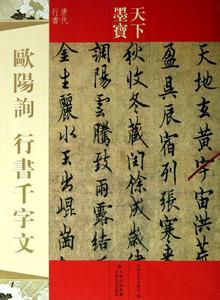 天下
墨寶
唐代
行書
歐陽詢 行書千字文
天地玄黃宇宙洪荒
盈昃辰宿列張寒來
秋收冬藏閏餘成歲
調陽雲騰致雨露結
生麗水玉出崐崗